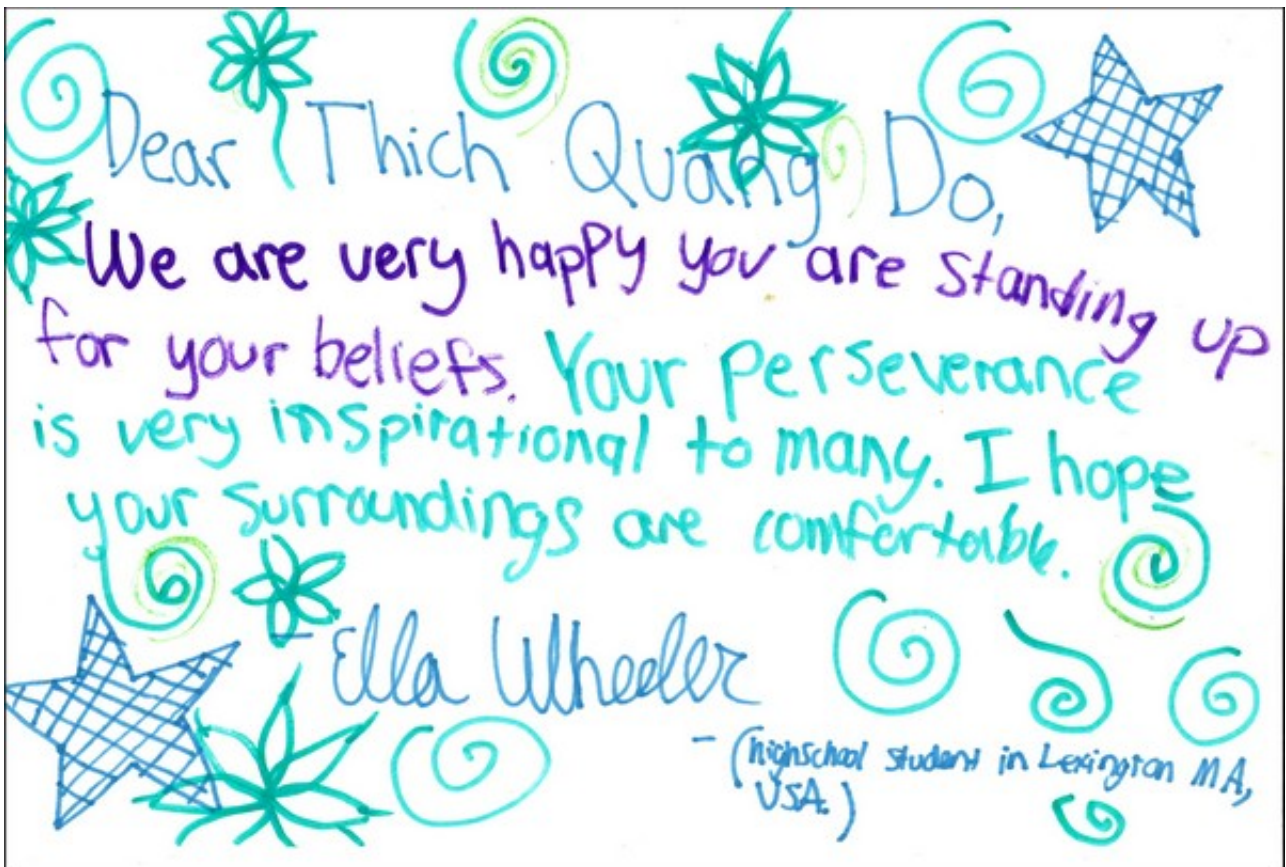 Dear Thich Quang Do,
We are very happy you are standing up
for your beliefs. Your perseverance
is very inspirational to many. I hope
your surroundings are comfortable.
- Ella Wheeler
- (highschool student in Lexington MA,
USA.)